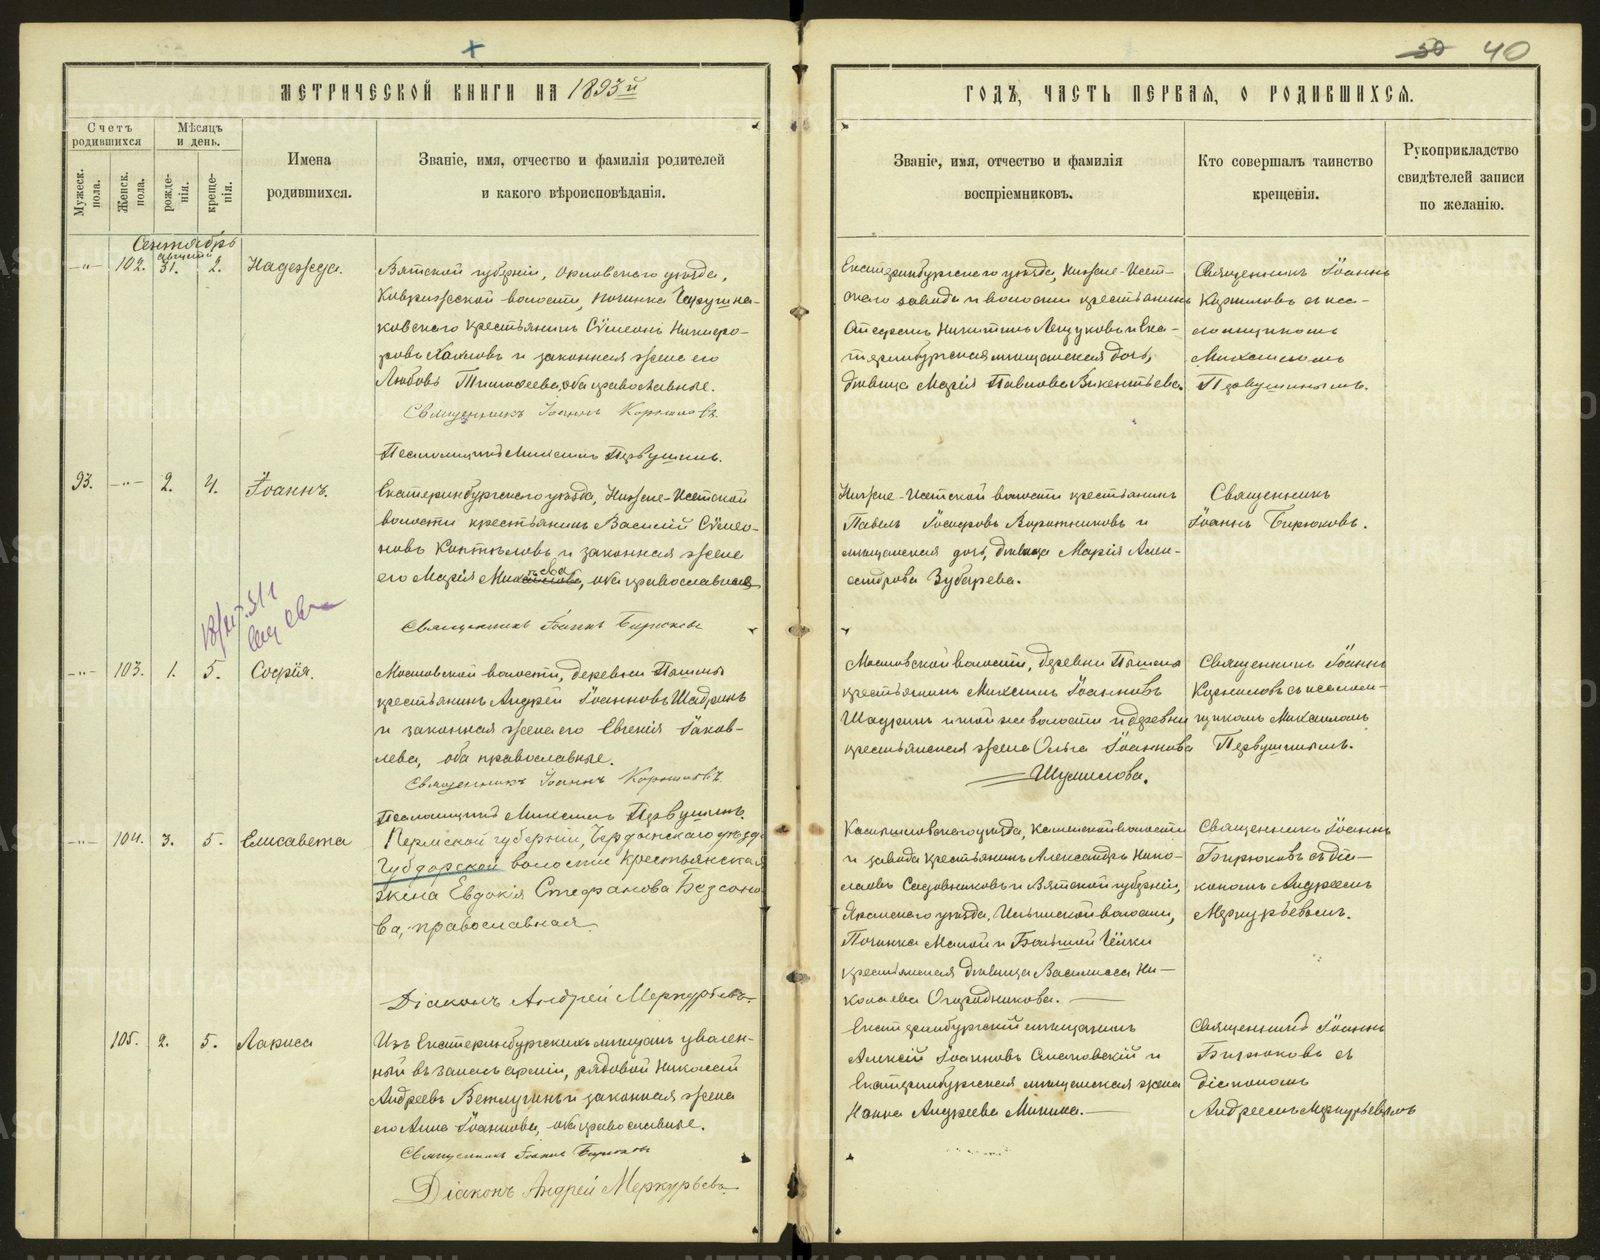 50 40
МЕТРИЧЕСКОЙ КНИГИ НА 1893й
ГОДЪ, ЧАСТЬ ПЕРВАЯ, О РОДИВШИХСЯ.
Счетъ родившихся
Мужеск. пола.
Женск. пола.
Мѣсяцъ и день.
рожденія.
крещенія.
Имена
родившихся.
Званіе, имя, отчество и фамилія родителей
и какого вѣроисповѣданія.
Званіе, имя, отчество и фамилія
воспріемниковъ.
Кто совершалъ таинство
крещенія.
Рукоприкладство
свидѣтелей записи
по желанію.
Сентябрь
августа
102. 31. 2. Надежда.
Вятской губерніи, Орловскаго уѣзда,
волости, починка
крестьянинъ Сѵмеонъ Никифо-
ровъ и законная жена его
Любовь Тимофеева, оба православные.
Священникъ Іоаннъ Корниловъ.
Псаломщикъ Михаилъ Первушинъ.
Екатеринбургскаго уѣзда, Нижне-Исет-
скаго завода и волости крестьянинъ
Никитинъ и Ека-
теринбургская мѣщанская дочь,
дѣвица Марія Павлова Викентьева.
Священникъ Іоаннъ
Корниловъ съ пса-
ломщикомъ
Михаиломъ
Первушинымъ.
93. 2. 4. Іоаннъ.
Екатеринбургскаго уѣзда, Нижне-Исетской
волости крестьянинъ Василій Сѵмео-
новъ и законная жена
его Марія, оба православные
Священникъ Іоаннъ Бирюковъ
Нижне-Исетской волости крестьянинъ
Павелъ Воротниковъ и
мѣщанская дочь, дѣвица Марія Алек-
сандрова Зубарева.
Священникъ
Іоаннъ Бирюковъ.
103. 1. 5. Софія.
Мостовской волости, деревни
крестьянинъ Андрей Іоанновъ Шадринъ
и законная жена его Евгенія Іаков-
лева, оба православные.
Священникъ Іоаннъ Корниловъ.
Псаломщикъ Михаилъ Первушинъ.
Мостовской волости, деревни
крестьянинъ Михаилъ Іоанновъ
Шадринъ и той же волости и деревни
крестьянская жена Ольга Іоаннова
Шумилова.
Священникъ Іоаннъ
Корниловъ съ псалом-
щикомъ Михаиломъ
Первушинымъ.
104. 3. 5. Елисавета
Пермской губерніи, Чердынскаго уѣзда
Губдорской волости крестьянская
жена Евдокія Стефанова Безсоно-
ва, православная.
Діаконъ Андрей Меркурьевъ.
уѣзда, волости
и завода крестьянинъ Александръ Нико-
лаевъ Садовниковъ и Вятской губерніи,
Яранскаго уѣзда, волости,
Починка Малой и Большой
крестьянская дѣвица Василисса Ни-
колаева Огородникова.
Священникъ Іоаннъ
Бирюковъ съ діа-
кономъ Андреемъ
Меркурьевымъ.
105. 2. 5. Лариса
Изъ Екатеринбургскихъ мѣщанъ уволен-
ный въ запасъ арміи, рядовой Николай
Андреевъ Ветлугинъ и законная жена
его Анна Іоаннова, оба православные.
Священникъ Іоаннъ Бирюковъ
Діаконъ Андрей Меркурьевъ
Екатеринбургскій мѣщанинъ
Алексій Іоанновъ и
Екатеринбургская мѣщанская жена
Андреева Минина.
Священникъ Іоаннъ
Бирюковъ съ
діакономъ
Андреемъ Меркурьевымъ